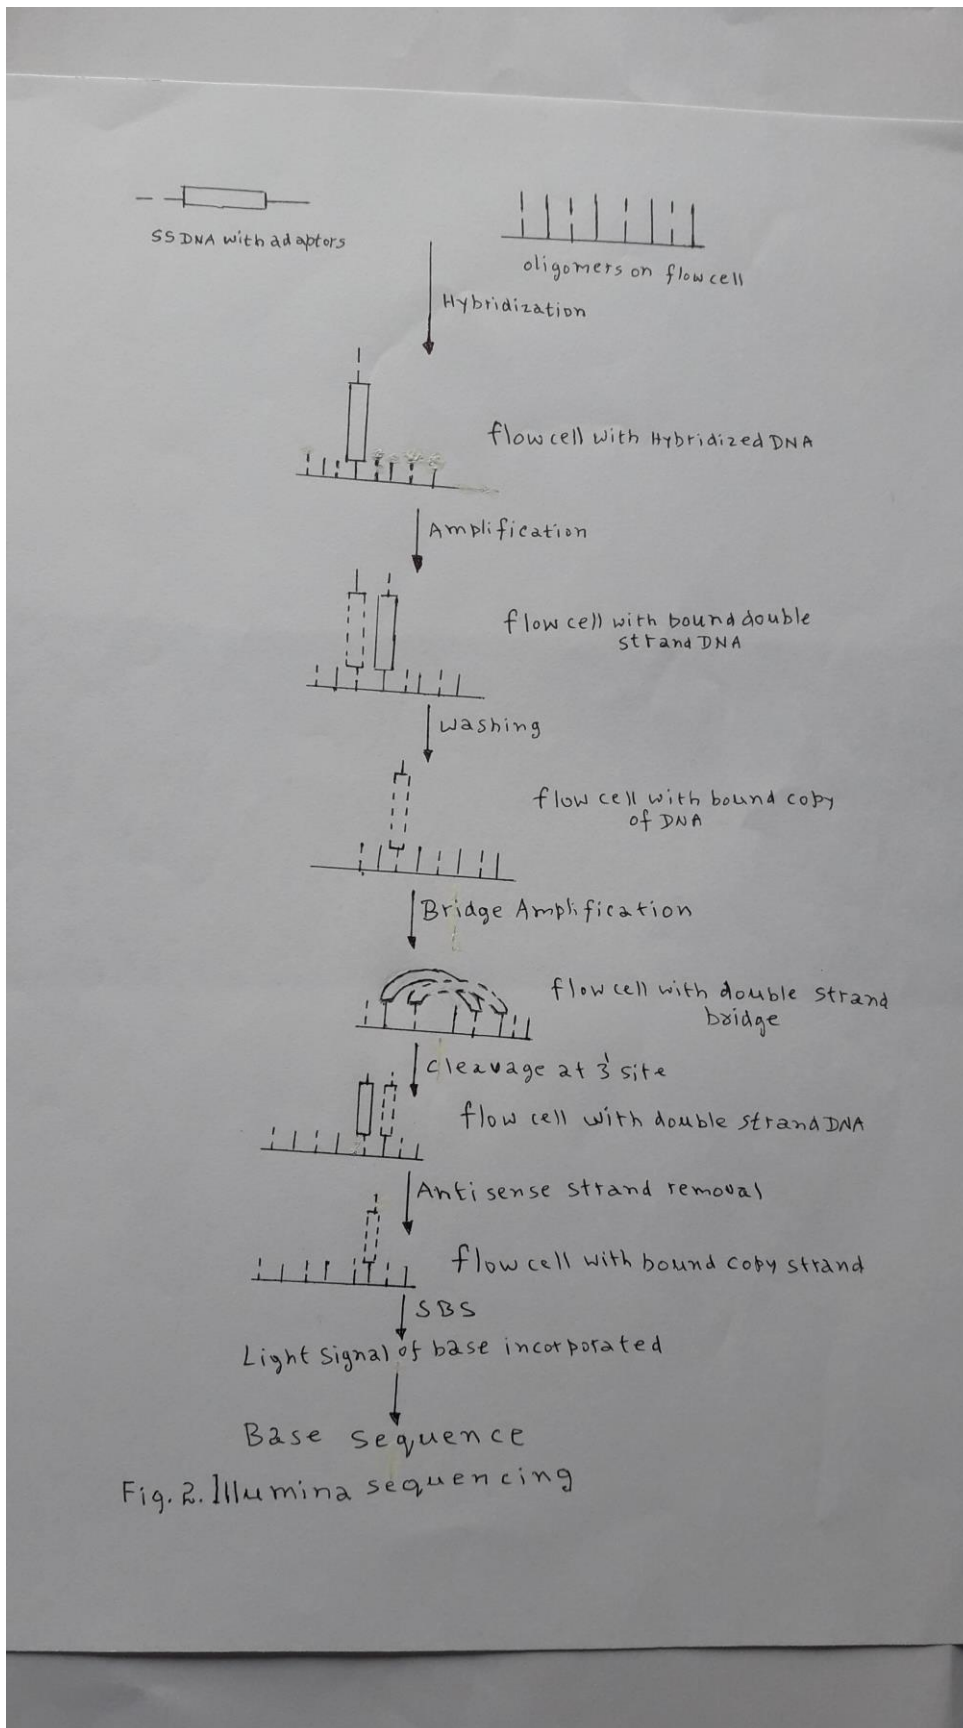 SS DNA with adaptors
oligomers on flow cell
Hybridization
flow cell with Hybridized DNA
Amplification
flow cell with bound double
strand DNA
washing
flow cell with bound copy
of DNA
Bridge Amplification
flow cell with double strand
bridge
cleavage at 3' site
flow cell with double strand DNA
Anti sense strand removal
flow cell with bound copy strand
SBS
Light signal of base incorporated
Base sequence
Fig. 2. Illumina sequencing